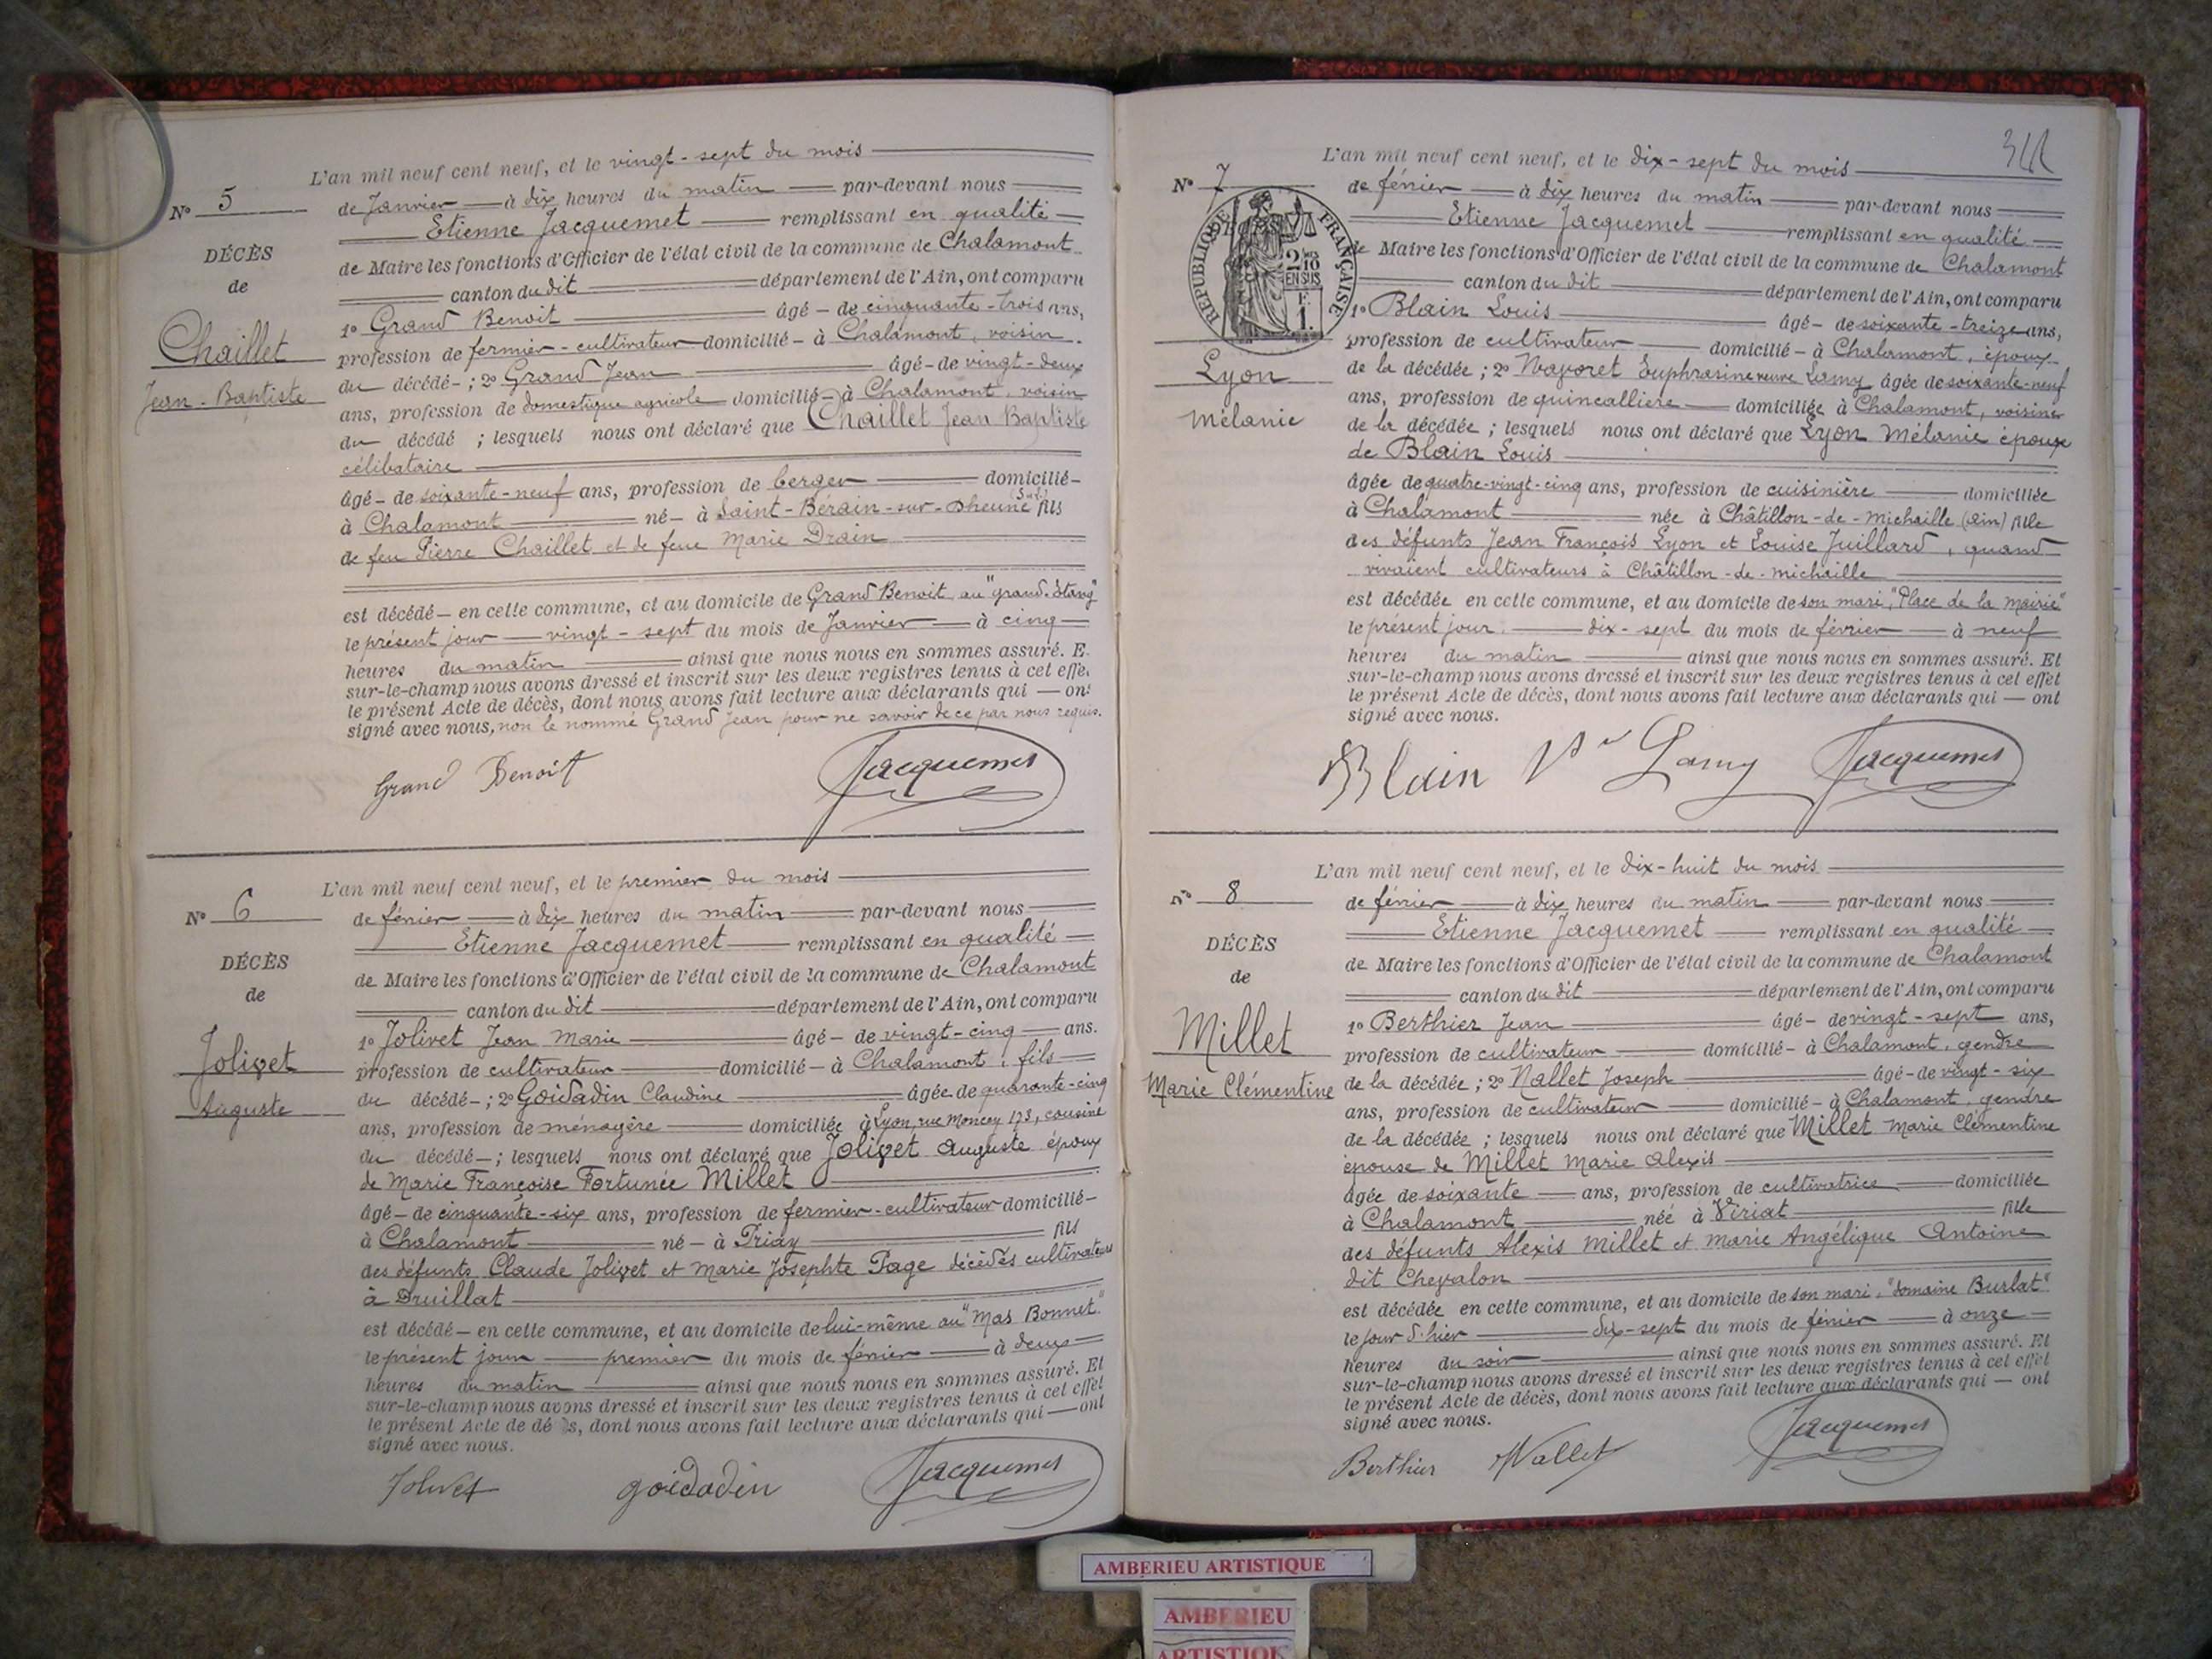 L'an mil neuf cent neuf, et le vingt-sept du mois
N° 5
de Janvier à dix heures du matin par-devant nous
Etienne Jacquemet remplissant en qualité
DÉCÈS
de Maire les fonctions d'Officier de l'état civil de la commune de Chalamont
de
canton du dit département de l'Ain, ont comparu
1° Grand Benoit âgé de cinquante-trois ans,
Chaillet
profession de fermier-cultivateur domicilié à Chalamont, voisin
du décédé ; 2° Grand Jean âgé de vingt-deux
Jean-Baptiste
ans, profession de domestique agricole domicilié à Chalamont, voisin
du décédé ; lesquels nous ont déclaré que Chaillet Jean Baptiste
célibataire
âgé de soixante-neuf ans, profession de berger domicilié
à Chalamont né à Saint-Bérain-sur-Dheune (S.et L.) fils
de feu Pierre Chaillet et de feue Marie Drain
est décédé en cette commune, et au domicile de Grand Benoit au "grand-Etang"
le présent jour vingt-sept du mois de Janvier à cinq
heures du matin ainsi que nous nous en sommes assuré. E
sur-le-champ nous avons dressé et inscrit sur les deux registres tenus à cet effe
le présent Acte de décès, dont nous avons fait lecture aux déclarants qui ont
signé avec nous, non le nommé Grand Jean pour ne savoir de ce par nous requis.
Grand Benoit Jacquemet
L'an mil neuf cent neuf, et le premier du mois
N° 6
de février à dix heures du matin par-devant nous
Etienne Jacquemet remplissant en qualité
DÉCÈS
de Maire les fonctions d'Officier de l'état civil de la commune de Chalamont
de
canton du dit département de l'Ain, ont comparu
1° Jolivet Jean Marie âgé de vingt-cinq ans.
Jolivet
profession de cultivateur domicilié à Chalamont, fils
du décédé ; 2° Goidadin Claudine âgée de quarante-cinq
Auguste
ans, profession de ménagère domiciliée à Lyon, rue Moncey 173, cousine
du décédé ; lesquels nous ont déclaré que Jolivet Auguste époux
de Marie Françoise Fortunée Millet
âgé de cinquante-six ans, profession de fermier-cultivateur domicilié
à Chalamont né à Priay fils
des défunts Claude Jolivet et Marie Josephte Page décédés cultivateurs
à Druillat
est décédé en cette commune, et au domicile de lui-même au "Mas Bonnet"
le présent jour premier du mois de février à deux
heures du matin ainsi que nous nous en sommes assuré. Et
sur-le-champ nous avons dressé et inscrit sur les deux registres tenus à cet effet
le présent Acte de dé s, dont nous avons fait lecture aux déclarants qui ont
signé avec nous.
Jolivet goidadin Jacquemet
L'an mil neuf cent neuf, et le dix-sept du mois
N° 7
de février à dix heures du matin par-devant nous
Etienne Jacquemet remplissant en qualité
RÉPUBLIQUE FRANÇAISE
2/10
EN SUS
F.
1.
de Maire les fonctions d'Officier de l'état civil de la commune de Chalamont
canton du dit département de l'Ain, ont comparu
1° Blain Louis âgé de soixante-treize ans,
profession de cultivateur domicilié à Chalamont, époux
Lyon
de la décédée ; 2° Euphrasine veuve Lamy âgée de soixante-neuf
ans, profession de quincallière domiciliée à Chalamont, voisine
Mélanie
de la décédée ; lesquels nous ont déclaré que Lyon Mélanie épouse
de Blain Louis
âgée de quatre-vingt-cinq ans, profession de cuisinière domiciliée
à Chalamont née à Châtillon-de-Michaille (Ain) fille
des défunts Jean François Lyon et Louise Juillard, quand
vivaient cultivateurs à Châtillon-de-Michaille
est décédée en cette commune, et au domicile de son mari, "Place de la Mairie"
le présent jour dix-sept du mois de février à neuf
heures du matin ainsi que nous nous en sommes assuré. Et
sur-le-champ nous avons dressé et inscrit sur les deux registres tenus à cet effet
le présent Acte de décès, dont nous avons fait lecture aux déclarants qui ont
signé avec nous.
Blain Vve Lamy Jacquemet
L'an mil neuf cent neuf, et le dix-huit du mois
N° 8
de février à dix heures du matin par-devant nous
Etienne Jacquemet remplissant en qualité
DÉCÈS
de Maire les fonctions d'Officier de l'état civil de la commune de Chalamont
de
canton du dit département de l'Ain, ont comparu
1° Berthier Jean âgé de vingt-sept ans,
Millet
profession de cultivateur domicilié à Chalamont, gendre
Marie Clémentine
de la décédée ; 2° Nallet Joseph âgé de vingt-six
ans, profession de cultivateur domicilié à Chalamont, gendre
de la décédée ; lesquels nous ont déclaré que Millet Marie Clémentine
épouse de Millet Marie Alexis
âgée de soixante ans, profession de cultivatrice domiciliée
à Chalamont née à Viriat fille
des défunts Alexis Millet et Marie Angélique Antoine
dit Chevalon
est décédée en cette commune, et au domicile de son mari, "domaine Burlat"
le jour d'hier dix-sept du mois de février à onze
heures du soir ainsi que nous nous en sommes assuré. Et
sur-le-champ nous avons dressé et inscrit sur les deux registres tenus à cet effet
le présent Acte de décès, dont nous avons fait lecture aux déclarants qui ont
signé avec nous.
Berthier Nallet Jacquemet
AMBERIEU ARTISTIQUE
AMBERIEU